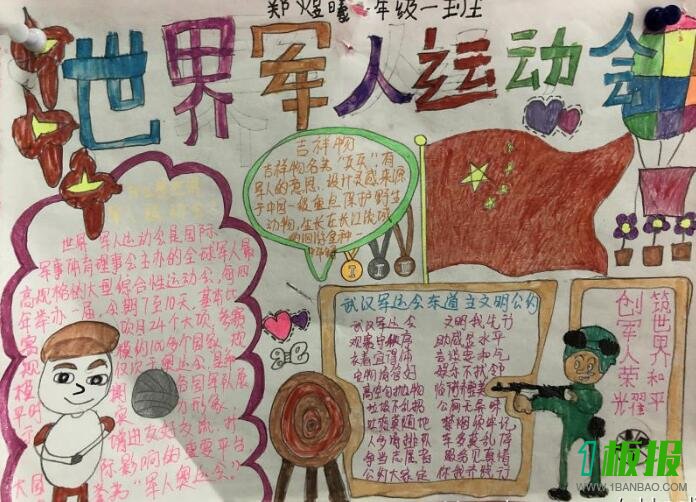 郑煜曦一年级一班
世界军人运动会
吉祥物
吉祥物名"兵兵"有
军人的意思，设计灵感来源
于中国一级重点保护野生
动物，生长在长江流域
的回游
世界军人运动会是国际
军事体育理事会主办的全球军人最
高规格的大型综合性运动会，每四
年举办一届，会期7至10天，
项目24个大项，参赛
规模约100多个国家，规模
仅次于奥运会，是
各国军队展
示
友好交流，扩
大国际影响的重要平台
誉为"军人奥运会。"
武汉军运会东道主文明公约
武汉军运会 文明我先行
观赛守秩序 助威显水平
衣着宜得体 言谈要和气
宠物
高空勿抛物
垃圾不乱扔 公厕无异味
人多请排队 车多莫乱停
争当志愿者 服务见真情
公约大家定 你我齐践行
筑世界和平
创军人荣耀
1板报
WWW.1BANBAO.COM